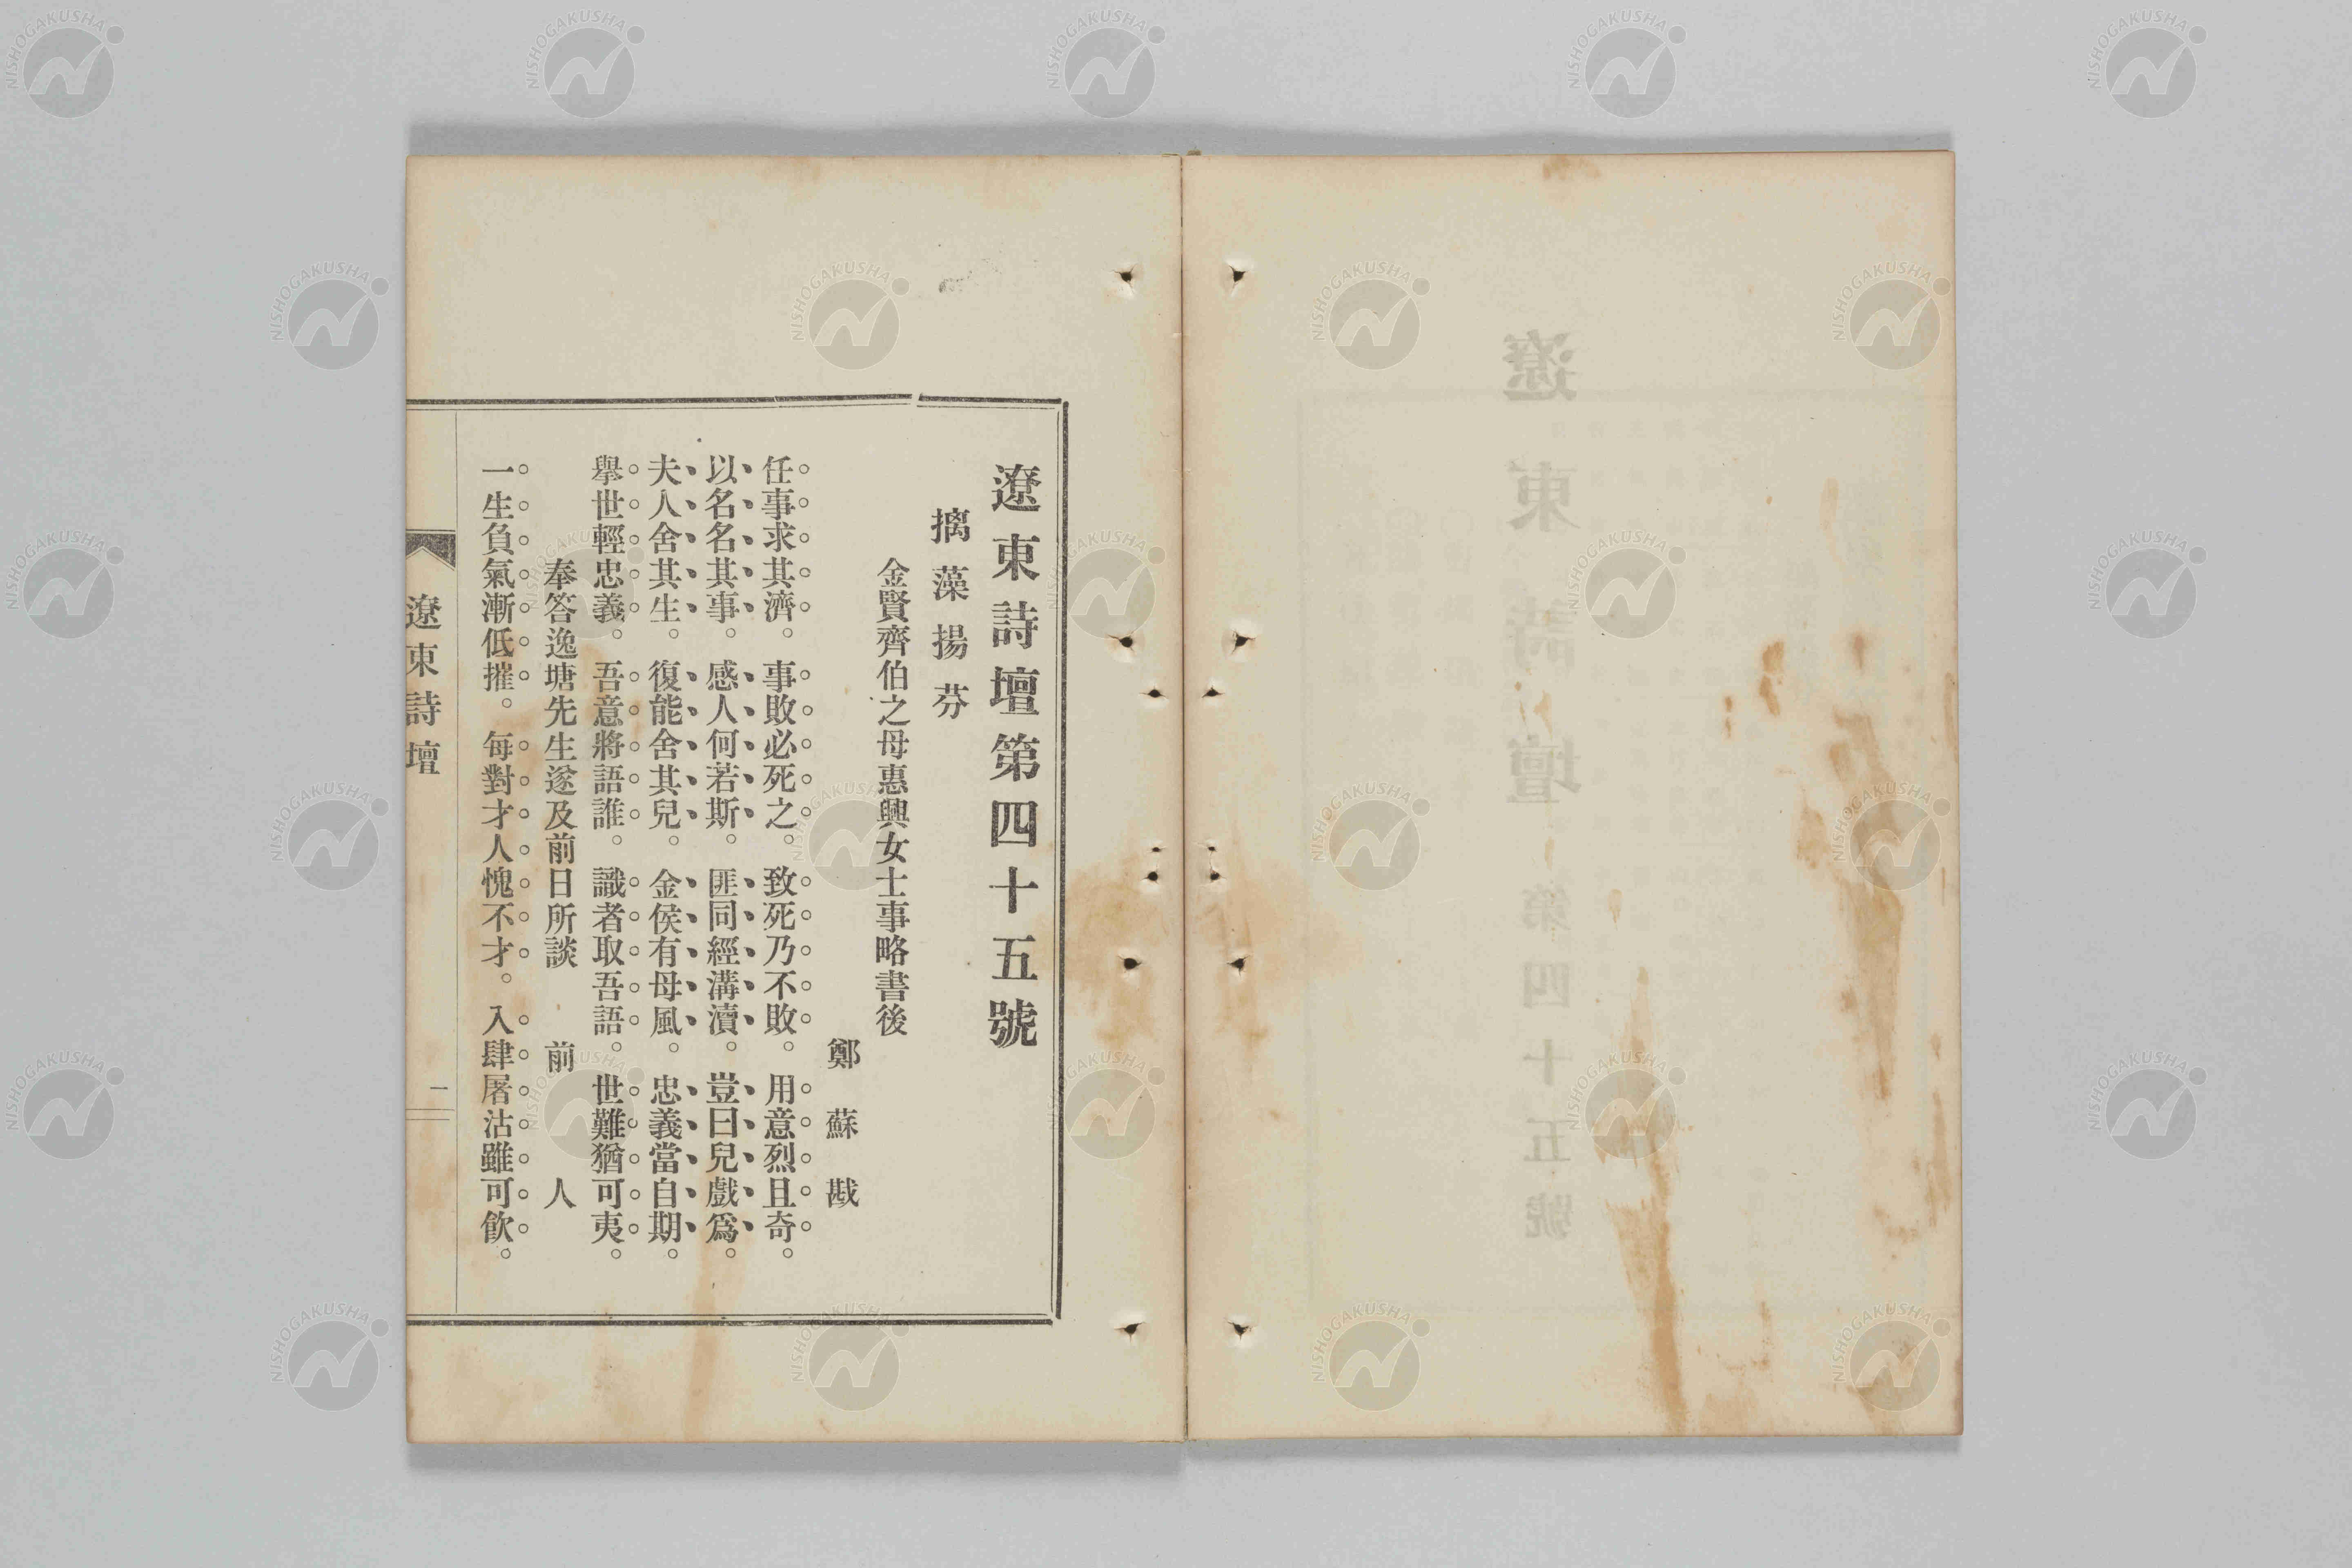 遼東詩壇第四十五號
摛藻揚芬
金賢齊伯之母惠興女士事略書後
鄭蘇戡
任事求其濟。事敗必死之。致死乃不敗。用意烈且奇。
以名名其事。感人何若斯。匪同經溝瀆。豈曰兒戲爲。
夫人舍其生。復能舍其兒。金侯有母風。忠義當自期。
舉世輕忠義。吾意將語誰。識者取吾語。世難猶可夷。
奉答逸塘先生遂及前日所談 前人
一生負氣漸低摧。每對才人愧不才。入肆屠沽雖可飮。
遼東詩壇 一
遼東詩壇 第四十五號
NISHOGAKUSHA